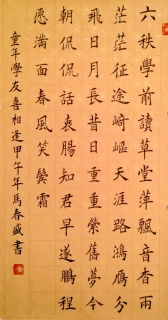 六秩學前讀草堂萍飄音杳兩
茫茫征途崎嶇天涯路鴻雁分
飛日月長昔日重重縈舊夢今
朝侃侃話衷腸知君早遂鵬程
愿滿面春風笑鬢霜
童年學友喜相逢甲午年馬春盛書